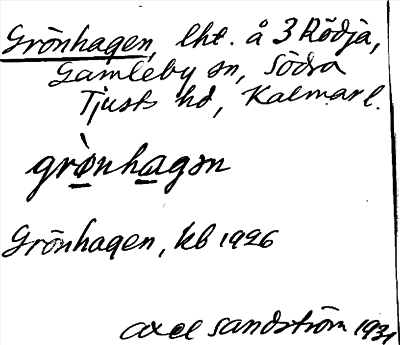 Grönhagen, lht. å 3 Rödja,
Gamleby sn, Södra
Tjusts hd, Kalmar l.
grò̱nha̱gən
Grönhagen, kb 1926
Axel Sandström 1931